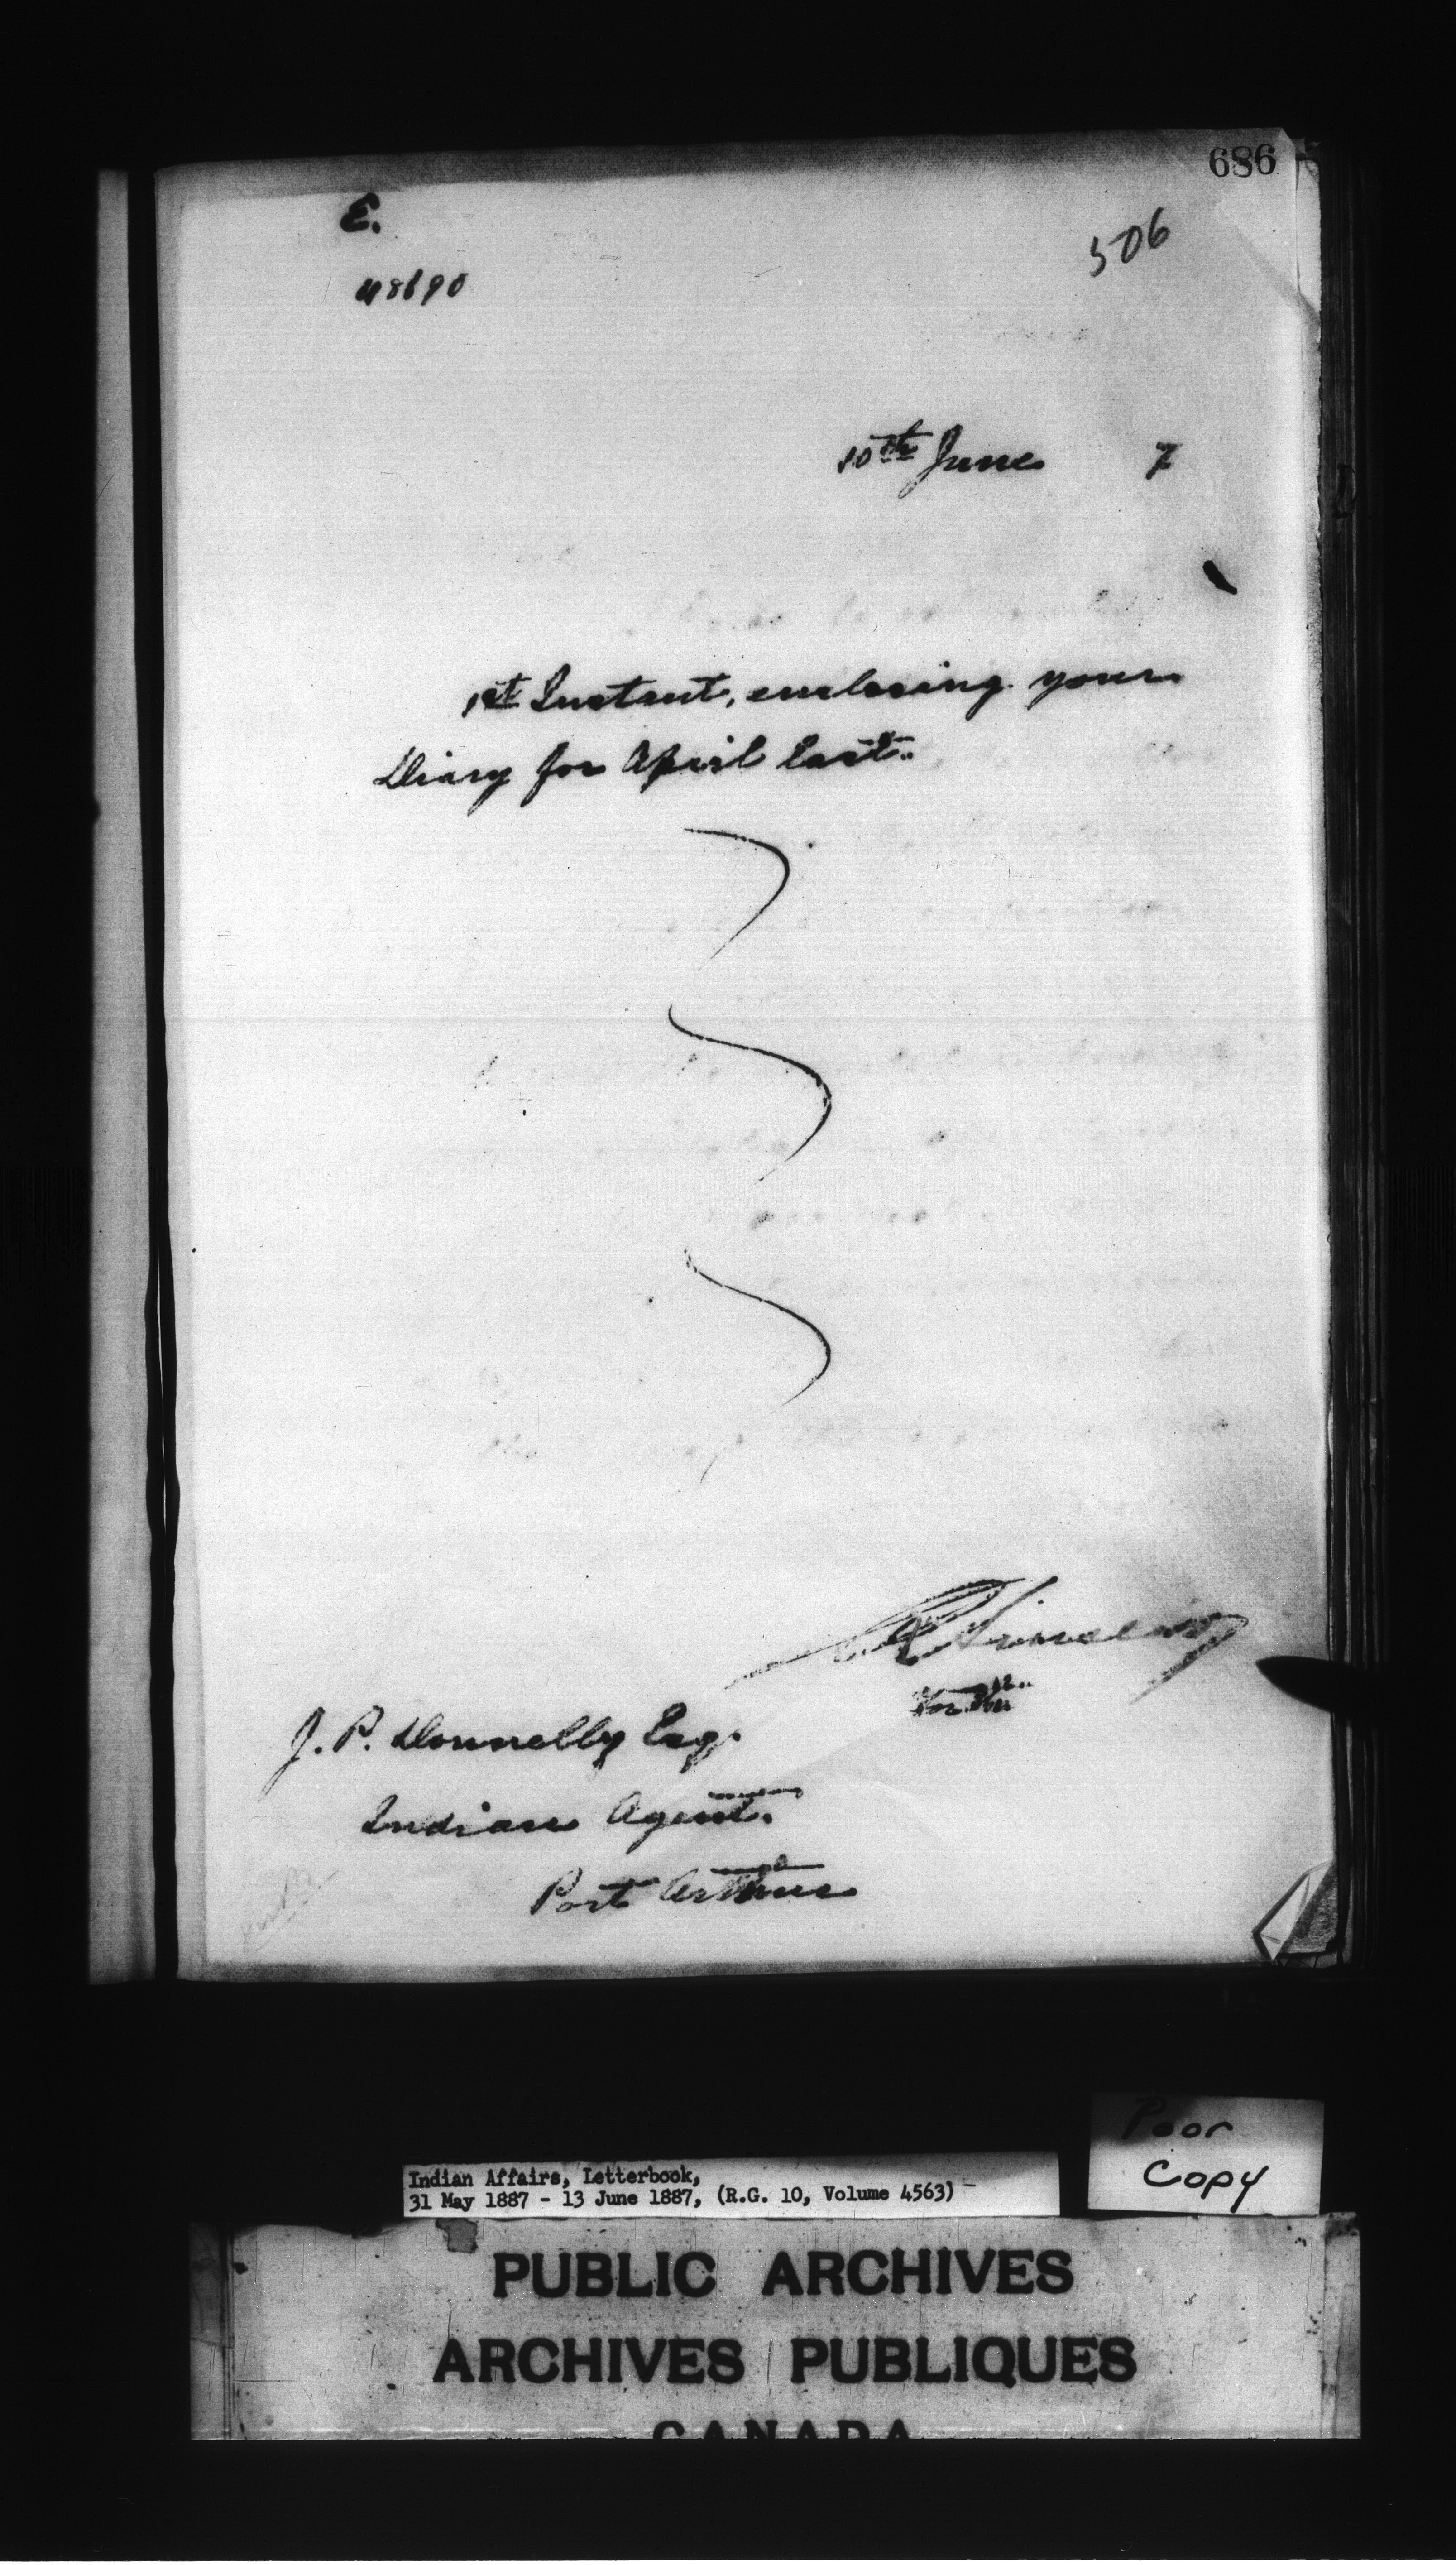 686
E.
506
48690
10th June 7
1st Instant, enclosing your
Diary for April last.
J. P. Donnelly Esq.
Indian Agent.
Port Arthur
Poor
Copy
Indian Affairs, Letterbook,
31 May 1887 - 13 June 1887, (R.G. 10, Volume 4563)
PUBLIC ARCHIVES
ARCHIVES PUBLIQUES
CANADA